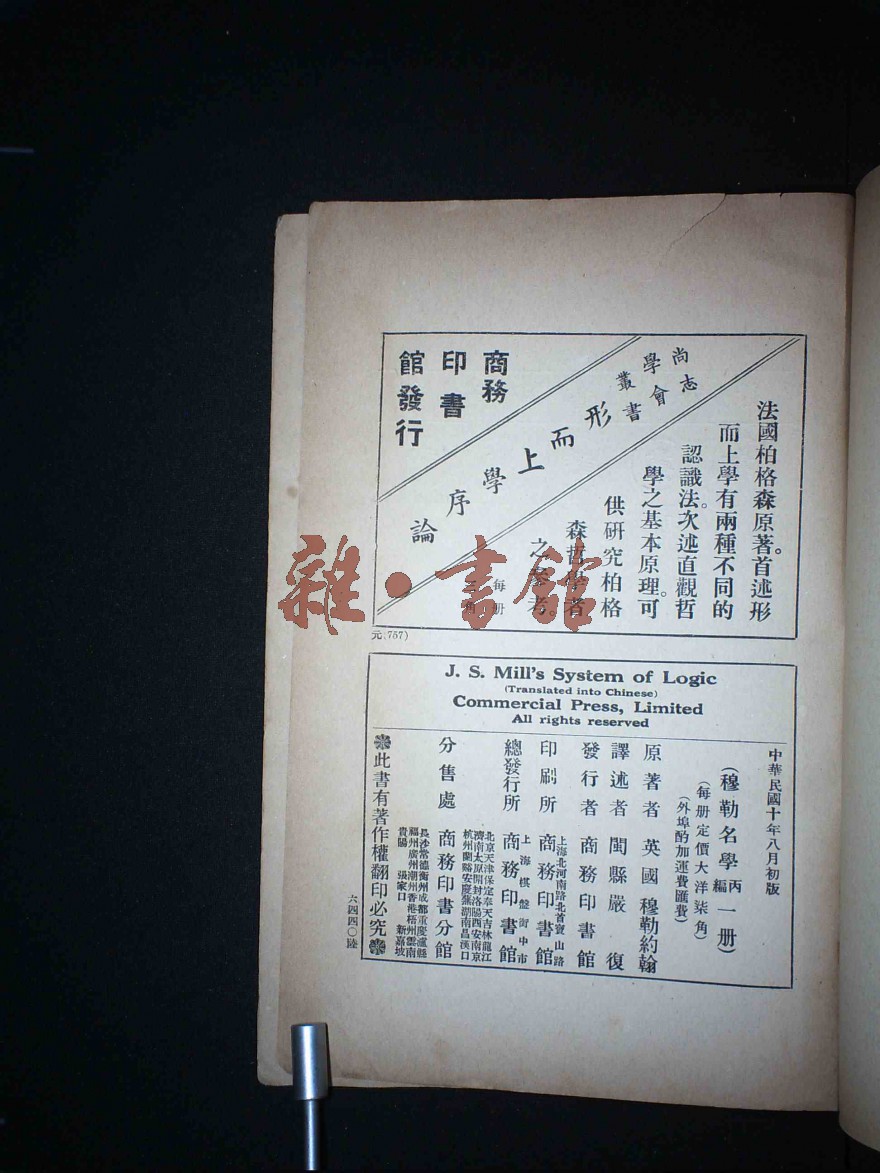 尚志
學會
叢書
形而上學序論
法國柏格森原著。首述形
而上學有兩種不同的
認識法。次述直觀哲
學之基本原理。可
供研究柏格
森哲學者
之參考。
每册
三角
商務
印書
館發行
元(757)
雜·書館
J. S. Mill's System of Logic
(Translated into Chinese)
Commercial Press, Limited
All rights reserved
中華民國十年八月初版
(穆勒名學丙編一册)
(每册定價大洋柒角)
(外埠酌加運費匯費)
原著者 英國穆勒約翰
譯述者 閩縣嚴復
發行者 商務印書館
印刷所 上海北河南路北首寶山路 商務印書館
總發行所 上海棋盤街中市 商務印書館
分售處 北京天津保定奉天吉林龍江
濟南太原開封洛陽西安南京
杭州蘭谿安慶蕪湖南昌漢口
商務印書分館
長沙常德衡州成都重慶瀘縣
福州廣州潮州香港梧州雲南
貴陽 張家口 新嘉坡
此書有著作權翻印必究
六四四〇陸